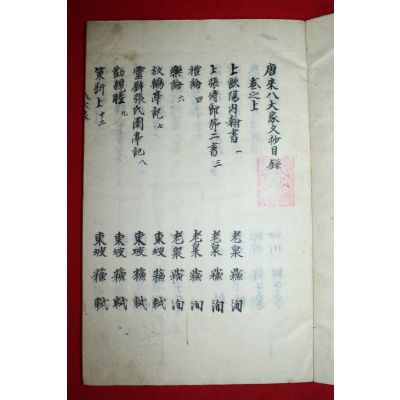 唐宋八大家文抄目錄
卷之上
上歐陽內翰書 一 老泉 蘇洵
上張侍郎第二書 三 老泉 蘇洵
權論 四 老泉 蘇洵
樂論 六 老泉 蘇洵
放鶴亭記 七 東坡 蘇軾
靈壁張氏園亭記 八 東坡 蘇軾
勸親睦 九 東坡 蘇軾
策斷上 十二 東坡 蘇軾